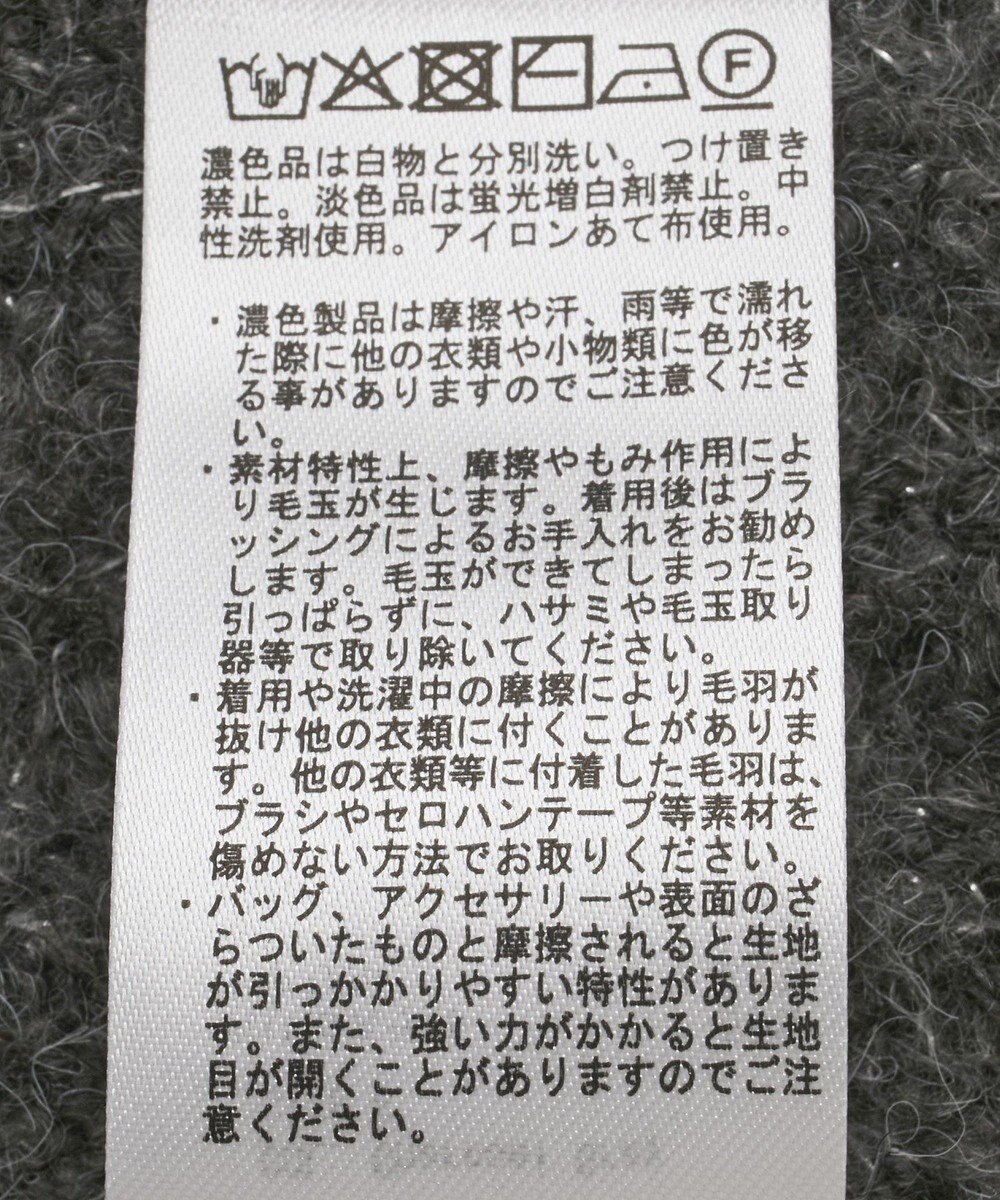 F
濃色品は白物と分別洗い。つけ置き
禁止。淡色品は蛍光増白剤禁止。中
性洗剤使用。アイロンあて布使用。
・濃色製品は摩擦や汗、雨等で濡れ
た際に他の衣類や小物類に色が移さ
る事がありますのでご注意くださ
い。
・素材特性上、摩擦やもみ作用によ
り毛玉が生じます。着用後はブラ
ッシングによるお手入れをお勧め
します。毛玉ができてしまったら
引っぱらずに、ハサミや毛玉取り
器等で取り除いてください。
・着用や洗濯中の摩擦により毛羽が
抜け他の衣類に付くことがありま
す。他の衣類等に付着した毛羽は、
ブラシやセロハンテープ等素材を
傷めない方法でお取りください。
・バッグ、アクセサリーや表面のざ
らついたものと摩擦されると生地
が引っかかりやすい特性がありま
す。また、強い力がかかると生地
目が開くことがありますのでご注
意ください。